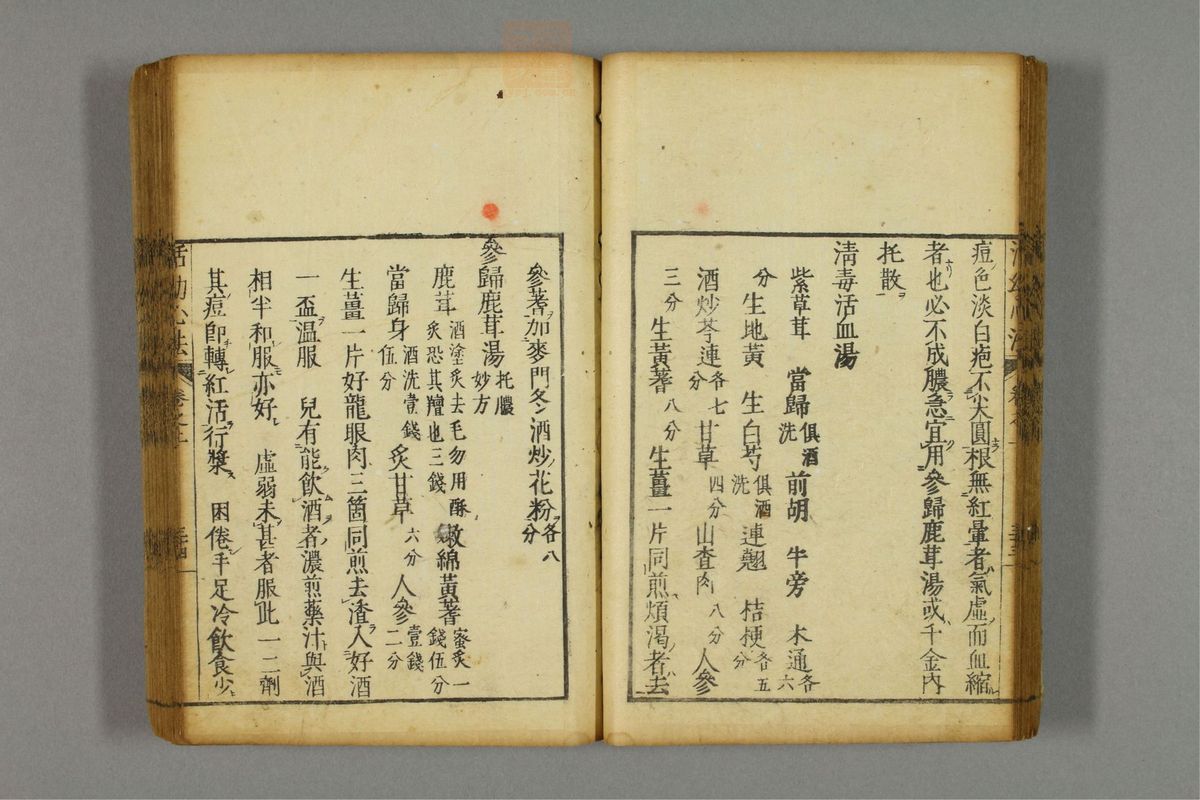 痘色淡白疱不尖圓根無紅暈者氣虛而血縮
者也必不成膿急宜用參歸鹿茸湯或千金內
托散
清毒活血湯
紫草茸 當歸俱酒洗 前胡 牛旁 木通各六
分 生地黃 生白芍俱酒洗 連翹 桔梗各五分
酒炒芩連各七分 甘草四分 山査肉八分 人參
三分 生黃蓍八分 生薑一片同煎煩渴者去
參蓍加麥門冬酒炒花粉各八分
參歸鹿茸湯托膿妙方
鹿茸酒塗炙去毛勿用酥炙恐其羶也三錢 嫩綿黃蓍蜜炙一錢伍分
當歸身酒洗壹錢伍分 炙甘草六分 人參壹錢二分
生薑一片好龍眼肉三箇同煎去渣入好酒
一盃温服 兒有能飲酒者濃煎藥汁與酒
相半和服亦好 虛弱未甚者服此一二劑
其痘卽轉紅活行漿 困倦手足冷飲食少
活幼心法